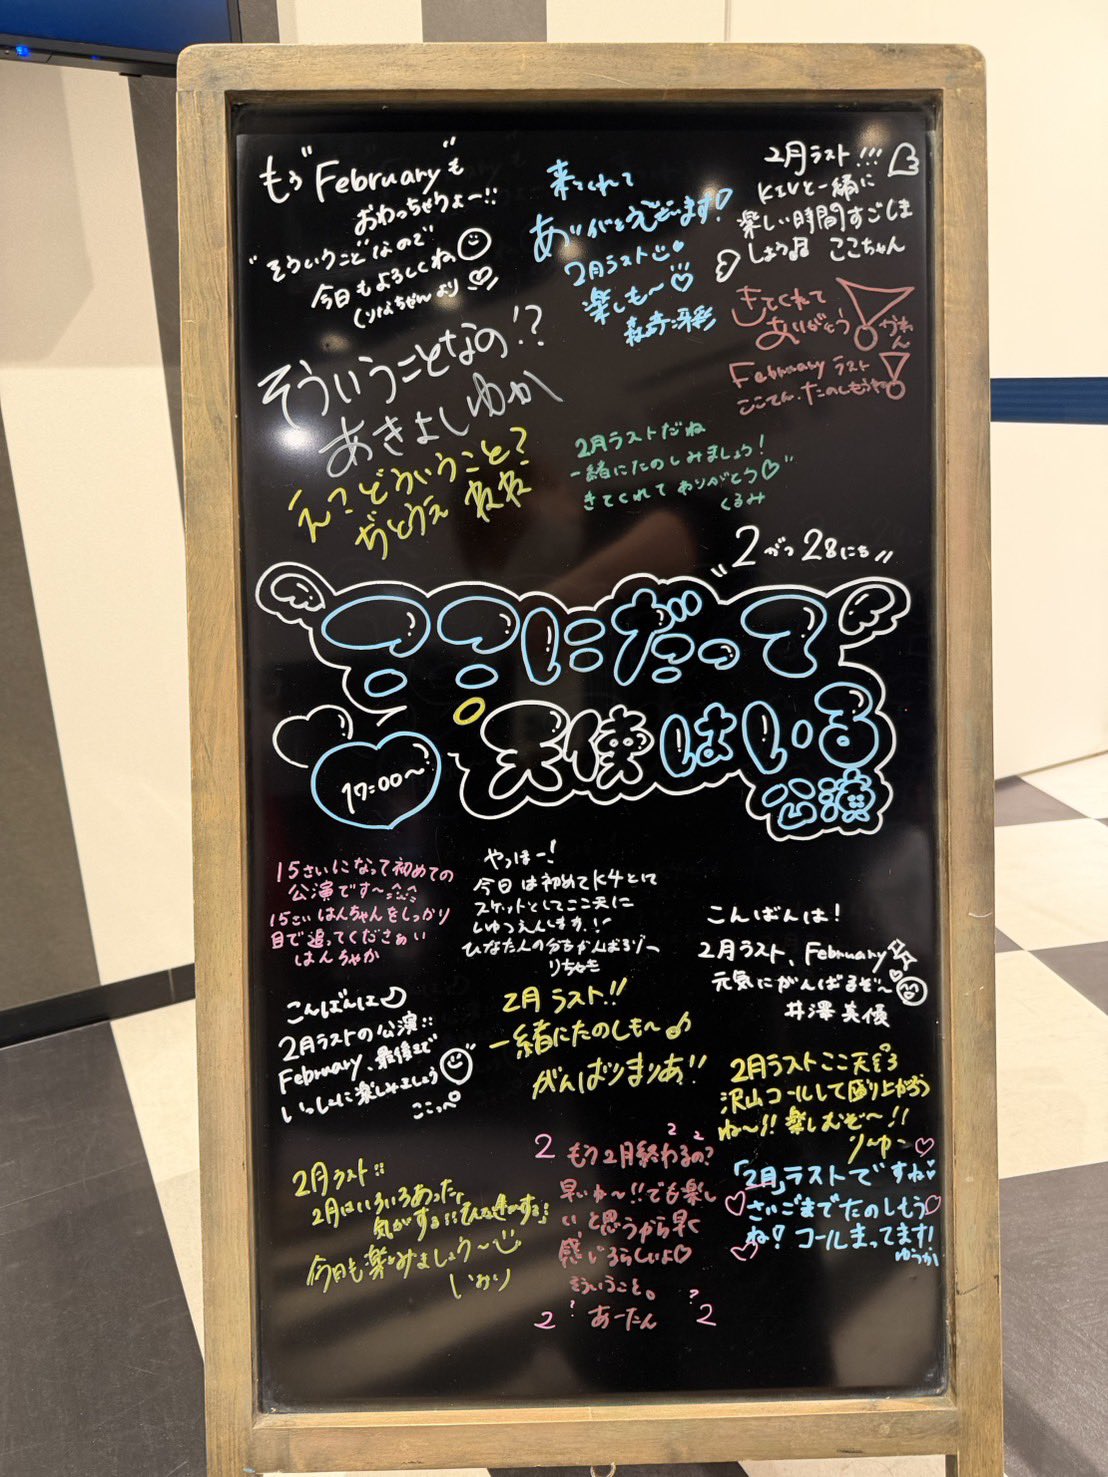 もう"February"も
おわっちゃうよー!!
"そういうこと"なので
今日もよろしくね
くりなちゃんより
来てくれて
ありがとうございます!
2月ラスト
楽しも〜
2月ラスト!!!
KIVと一緒に
楽しい時間すごしま
しょう ここちゃん
きてくれて
ありがとう! かれん
February ラスト
ここてん、たのしもうね!
そういうことなの!?
あきよしゆか
え?どういうこと?
2月ラストだね
一緒にたのしみましょう!
きてくれてありがとう♡
くるみ
"2がつ28にち"
ここにだって
天使はいる
公演
17:00〜
15さいになって初めての
公演です〜
15さいはんちゃんをしっかり
目で追ってくださぁい
はんちゃか
やっほー!
今日は初めてK4とにて
スケットとしてここ天に
しゅつえんします!
ひなたんの分もがんばるゾー
りちゃき
こんばんは!
2月ラスト、February
元気にがんばるぞ〜
井澤美優
こんばんは
2月ラストの公演!!
February、最後まで
いっしょに楽しみましょう
ここっぺ
2月ラスト!!
一緒にたのしも〜♪
がんばりまりあ!!
2月ラストここ天
沢山コールして盛り上がろう
ね〜!! 楽しむぞ〜!!
りーゆー
2月ラスト!!
2月はいろいろあった
気がする!!そんな気がする!!
今日も楽しみましょう〜
いおり
2 2 2
もう2月終わるの?
早いゆ〜!!でも楽し
い、と思うから早く
感じるらしいよ♡
そういうこと。
2 ? あーたん ? 2
「2月」ラストですね
さいごまでたのしもう
ね! コールまってます!
ゆうか